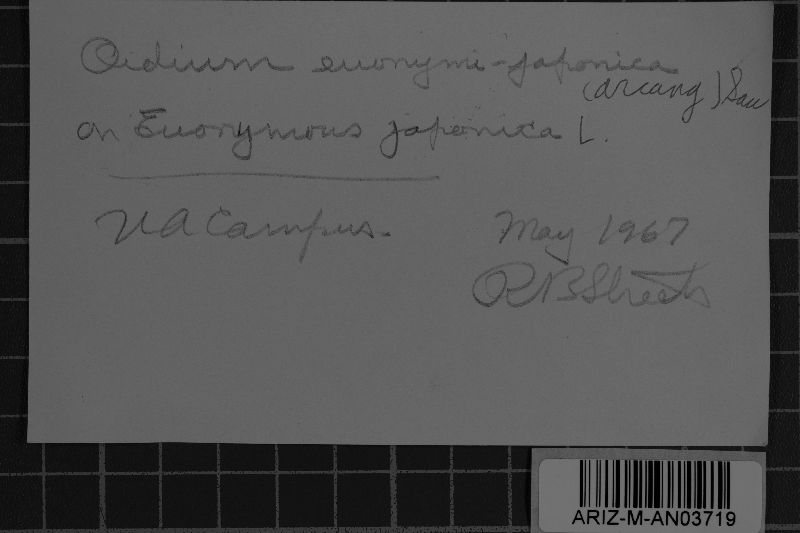 Oidium euonymi-japonica
(arcang) Sacc
on Euonymous japonica L.
UA Campus. May 1967
RB Streets
ARIZ-M-AN03719